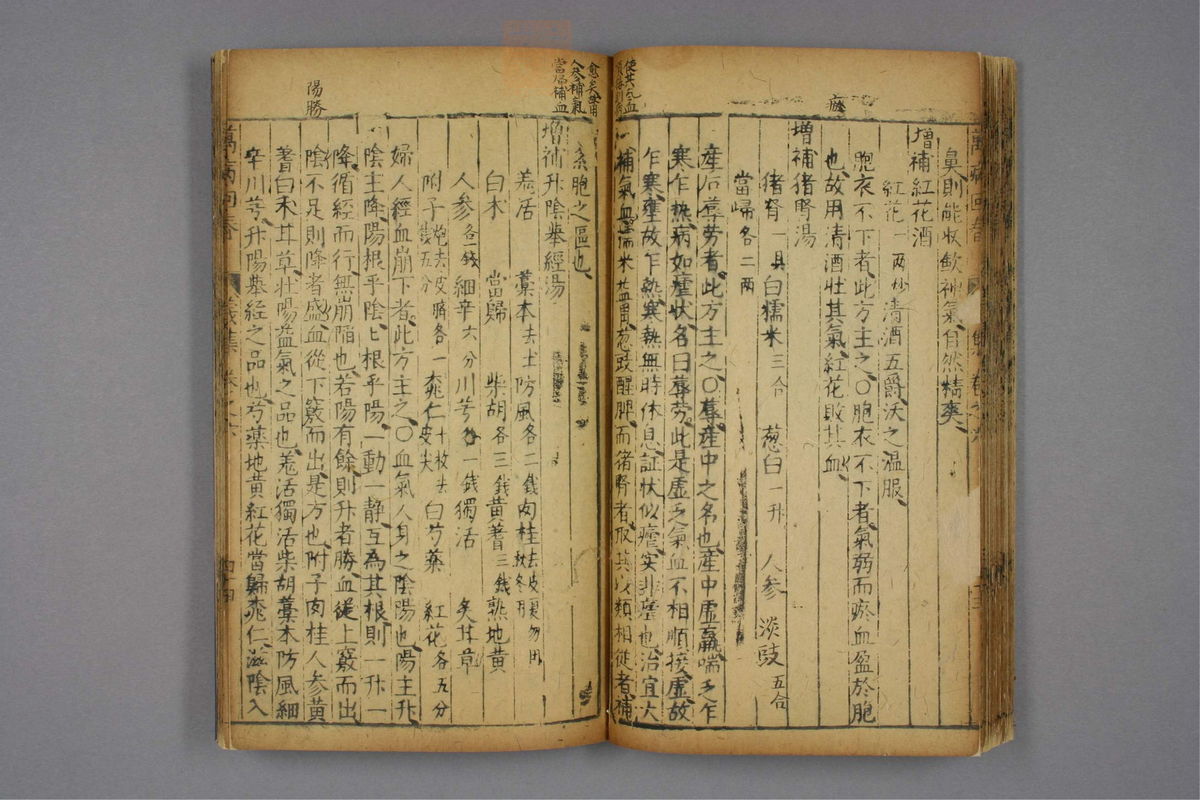 鼻則能收歛神氣自然精爽
增補紅花酒
紅花一兩炒清酒五爵沃之温服
胞衣不下者此方主之〇胞衣不下者氣弱而瘀血盈於胞
也故用清酒壯其氣紅花敗其血
增補猪腎湯
猪腎一具白糯米三合 葱白一升 人參 淡豉五合
當歸各二兩
產后蓐劳者此方主之〇蓐產中之名也產中虚羸喘乏乍
寒乍熱病如瘧状名曰蓐劳此是虚乏氣血不相順接虚故
乍寒壅故乍熱寒熱無時休息証状似瘧实非瘧也治宜大
補氣血
葱豉醒脾而猪腎者取其以類相從者補
系胞之區也
增補升陰舉經湯
羗活 藁本去土防風各二錢肉桂去皮夏勿用秋冬用
白朮 當歸 柴胡各三錢黄蓍三錢熟地黄
人參各一錢細辛六分川芎各一錢獨活 炙甘草
附子炮去皮臍各一錢五分 桃仁十枚去皮尖 白芍藥 紅花各五分
婦人經血崩下者此方主之〇血氣人身之陰陽也陽主升
陰主降陽根乎陰匕根乎陽一動一静互為其根則一升一
降循經而行無崩陥也若陽有餘則升者勝血從上竅而出
陰不足則降者盛血從下竅而出是方也附子肉桂人參黄
蓍白朮甘草壮陽益氣之品也羗活獨活柴胡藁本防風細
辛川芎升陽舉經之品也芍藥地黄紅花當歸桃仁滋陰入
陽勝
人參補氣
當歸補血